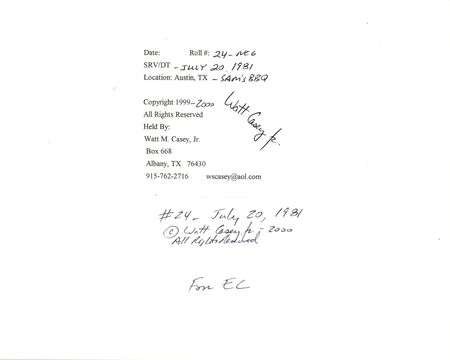 Date: Roll #: 24-NEG
SRV/DT - JULY 20, 1981
Location: Austin, TX - SAM'S BBQ
Copyright 1999-2000
All Rights Reserved
Held By:
Watt M. Casey, Jr.
Box 668
Albany, TX 76430
915-762-2716 wscasey@aol.com
Watt Casey Jr.
#24 - July 20, 1981
© Watt Casey Jr - 2000
All Rights Reserved
For EC